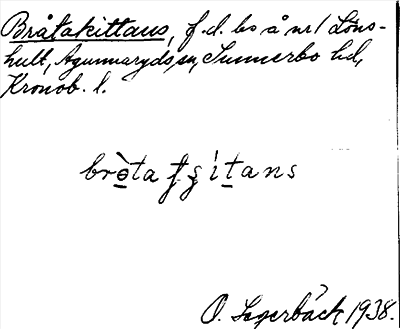 Bråtakittans, f.d. bs å nr 1 Löns-
hult, Agunnaryds sn, Sunnerbo hd,
Kronob. l.
O. Segerbäck 1938.